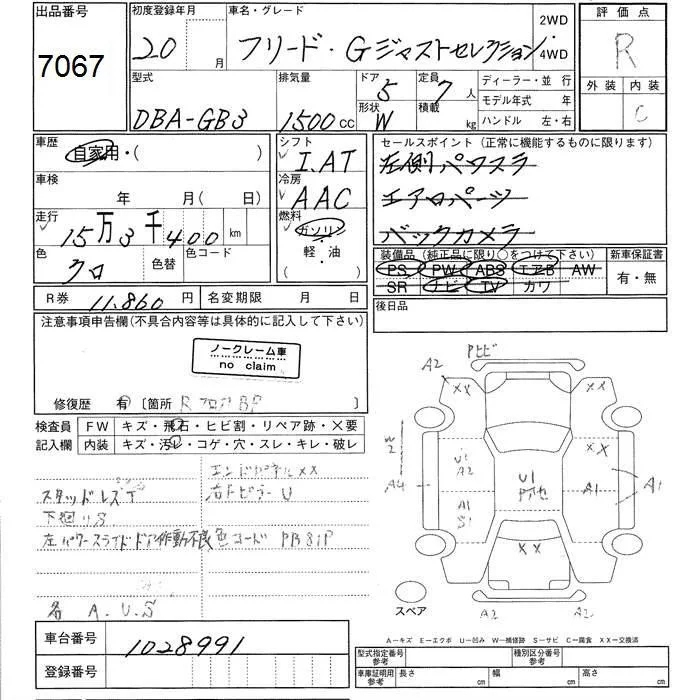 出品番号 初度登録年月 車名・グレード 2WD 評価点
7067 20 月 フリード・Gジャストセレクション 4WD R
型式 排気量 ドア 5 定員 7 人 ディーラー・並行 外装 内装
DBA-GB3 1500 cc 形状 W 積載 kg モデル年式 年 C
ハンドル 左・右
車歴 シフト セールスポイント(正常に機能するものに限ります)
自家用・( ) I.AT 左側パワスラ
車検 冷房 エアロパーツ
年 月( 日) AAC バックカメラ
走行 燃料
15万3千400 km ガソリン
色 色替 色コード 軽・油
クロ ( )
装備品(純正品に限り○をつけて下さい) 新車保証書
PS PW ABS エアB AW 有・無
SR ナビ TV カワ
R券 11,860 円 名変期限 月 日 後日品
注意事項申告欄(不具合内容等は具体的に記入して下さい)
ノークレーム車
no claim
修復歴 有 〔箇所 R フロア BP 〕
検査員 FW キズ・飛石・ヒビ割・リペア跡・×要
記入欄 内装 キズ・汚レ・コゲ・穴・スレ・キレ・破レ
エンドパネル XX
スタッドレス 右Fピラー U
下廻りS
左パワースライドドア作動不良 色コード PB81P
各 A.U.S
車台番号 1028991
登録番号
A2 ヒビ A1
XX XX
W2 XX
U1
A2 U1
A4 A1 A1
A1
S1
XX
スペア A2 A2
A―キズ E―エクボ U―凹み W―補修跡 S―サビ C―腐食 XX―交換済
型式指定番号 参考 種別区分番号 参考
車庫証明用 参考 長さ cm 幅 cm 高さ cm